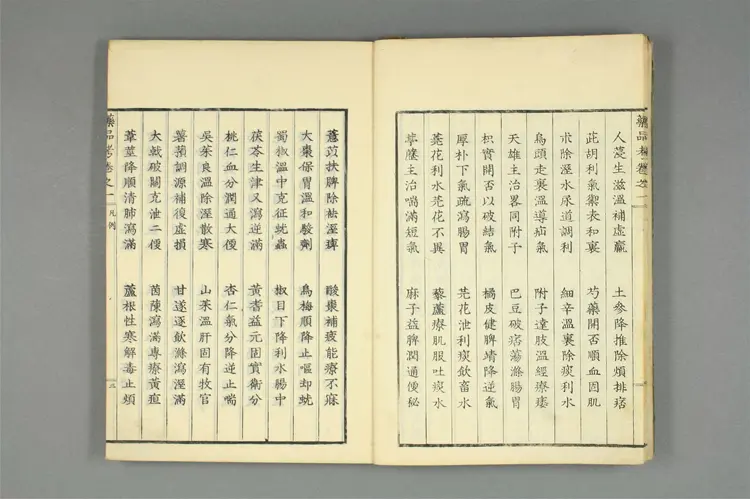 藥品考卷之一
人蓡生滋溫補虛羸
土參降推除煩排痞
茈胡利氣禦表和裏
芍藥開否順血固肌
朮除溼水尿道調利
細辛溫裏除痰利水
烏頭走裏溫導疝氣
附子達肢溫經療痿
天雄主治畧同附子
巴豆破痞蕩滌腸胃
枳實開否以破結氣
橘皮健脾靖降逆氣
厚朴下氣疏瀉腸胃
芫花泄利痰飲畜水
蕘花利水芫花不異
藜蘆療肌服吐痰水
葶藶主治喘滿短氣
麻子益脾潤通便秘
薏苡扶脾除祛溼痺
酸棗補疲能療不寐
大棗保胃溫和駿劑
烏梅順降止嘔却蚘
蜀椒溫中克征蚘蟲
椒目下降利水腸中
茯苓生津又瀉逆滿
黃耆益元固實衛分
桃仁血分潤通大便
杏仁氣分降逆止喘
吳茱良溫除溼散寒
山茱溫肝固有收官
薯蕷調源補復虛損
甘遂逐飲滌瀉溼滿
大戟破關克泄二便
茵陳瀉滿專療黃疸
葦莖降順清肺瀉滿
蘆根性寒解毒止煩
藥品考卷之一
凡例